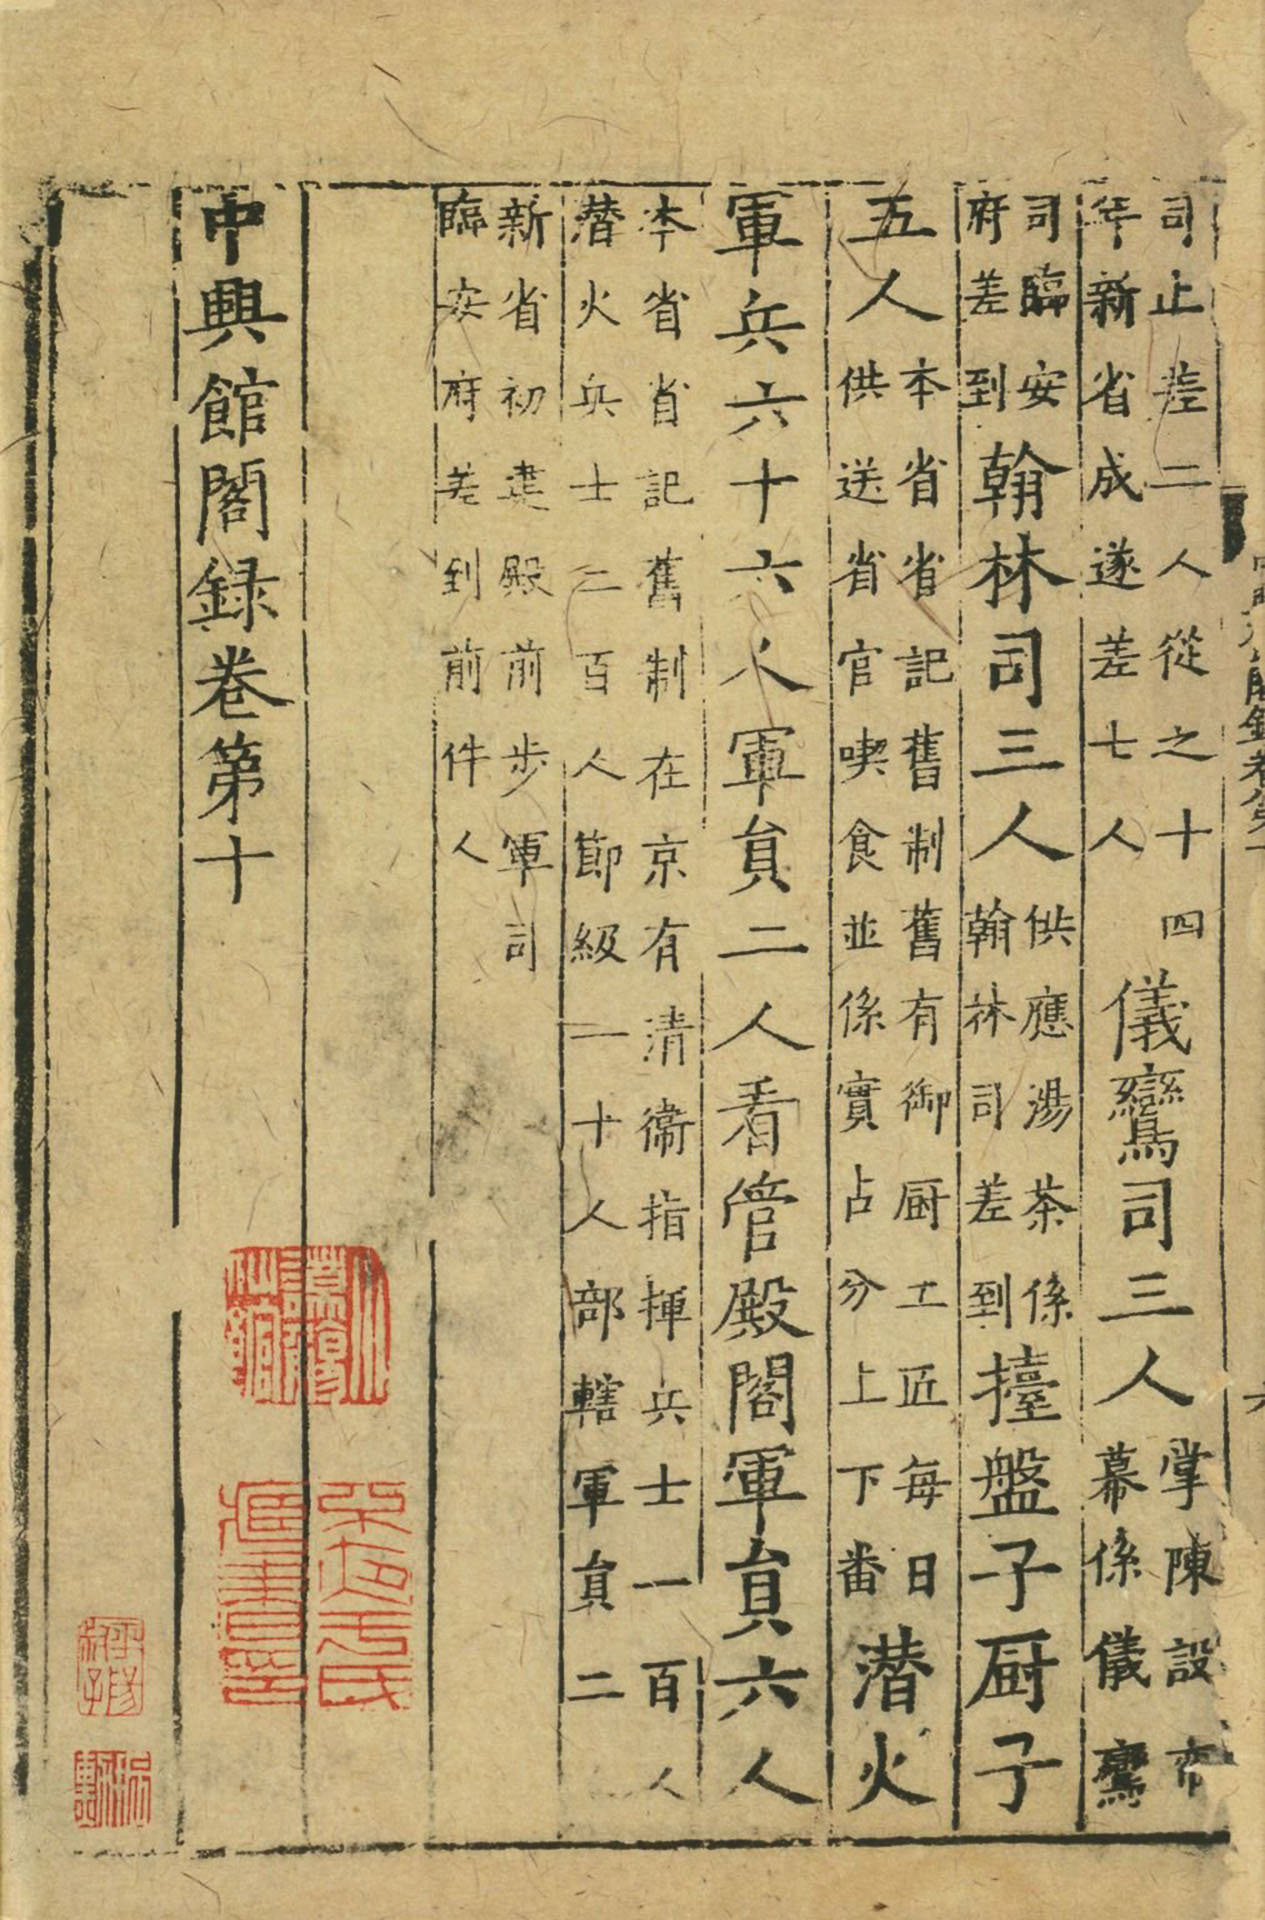 司止差二人從之十四
年新省成遂差七人
儀鸞司三人
掌陳設帟
幕係儀鸞
司臨安
府差到
翰林司三人
供應湯茶係
翰林司差到
擡盤子厨子
五人
本省省記舊制舊有御厨工匠每日
供送省官喫食並係實占分上下番
潜火
軍兵六十六人軍員二人看管殿閣軍員六人
本省省記舊制在京有清衛指揮兵士一百人
潜火兵士二百人節級一十人部轄軍員二人
新省初建殿前步軍司
臨安府差到前件人
中興館閣錄卷第十